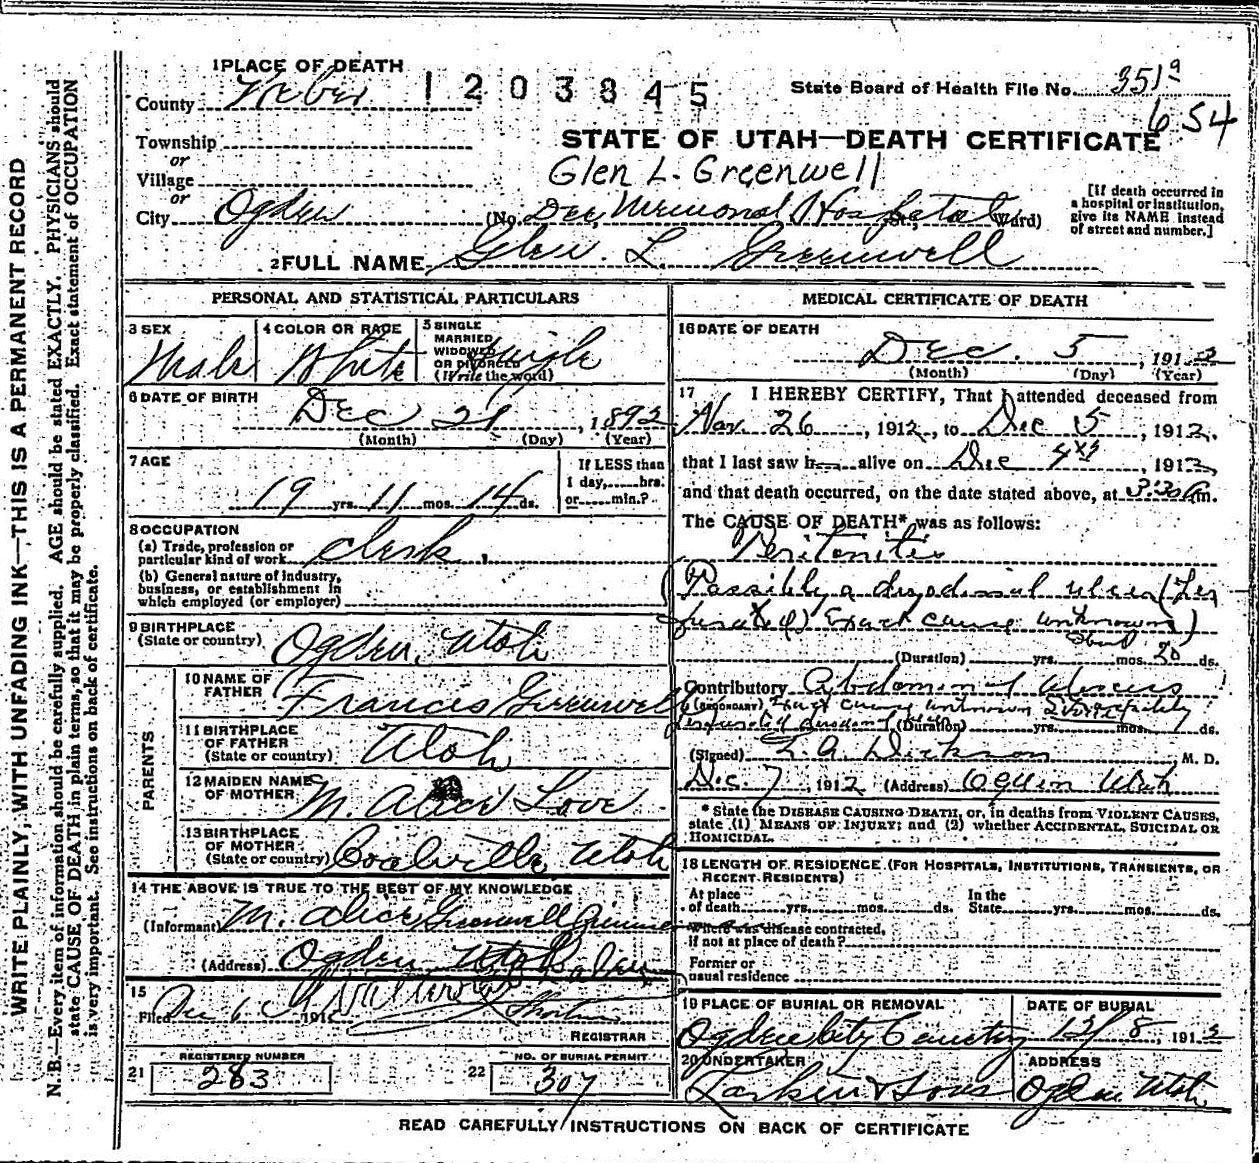 WRITE PLAINLY, WITH UNFADING INK—THIS IS A PERMANENT RECORD
N. B.—Every item of information should be carefully supplied. AGE should be stated EXACTLY. PHYSICIANS should
state CAUSE OF DEATH in plain terms, so that it may be properly classified. Exact statement of OCCUPATION
is very important. See instructions on back of certificate.
1 PLACE OF DEATH
County Weber
1203845
State Board of Health File No. 351 a
654
Township
or
Village
or
City Ogden
STATE OF UTAH—DEATH CERTIFICATE
Glen L. Greenwell
(No. Dee Memorial Hospital St.; Ward)
[If death occurred in
a hospital or institution,
give its NAME instead
of street and number.]
2 FULL NAME Glen L. Greenwell
PERSONAL AND STATISTICAL PARTICULARS
3 SEX
Male
4 COLOR OR RACE
White
5 SINGLE
MARRIED
WIDOWED
OR DIVORCED
(Write the word)
Single
6 DATE OF BIRTH
Dec 21, 1892
(Month) (Day) (Year)
7 AGE
19 yrs. 11 mos. 14 ds.
If LESS than
1 day, hrs.
or min.?
8 OCCUPATION
(a) Trade, profession or
particular kind of work Clerk
(b) General nature of industry,
business, or establishment in
which employed (or employer)
9 BIRTHPLACE
(State or country) Ogden, Utah
PARENTS
10 NAME OF
FATHER Francis Greenwell
11 BIRTHPLACE
OF FATHER
(State or country) Utah
12 MAIDEN NAME
OF MOTHER M. Alice Love
13 BIRTHPLACE
OF MOTHER
(State or country) Coalville, Utah
14 THE ABOVE IS TRUE TO THE BEST OF MY KNOWLEDGE
(Informant) M. Alice Greenwell
(Address) Ogden Utah
15
Filed Dec 6 191
REGISTRAR
REGISTERED NUMBER
21 283
NO. OF BURIAL PERMIT
22 307
MEDICAL CERTIFICATE OF DEATH
16 DATE OF DEATH
Dec. 5, 1912
(Month) (Day) (Year)
17 I HEREBY CERTIFY, That I attended deceased from
Nov. 26, 1912, to Dec 5, 1912,
that I last saw h alive on Dec 4th, 1912
and that death occurred, on the date stated above, at 3:30 a m.
The CAUSE OF DEATH* was as follows:
Peritonitis
(Possibly a duodenal ulcer (Per
forated) Exact cause unknown)
about
(Duration) yrs. mos. 20 ds.
Contributory Abdominal abscess
(SECONDARY) Exact cause unknown
(Duration) yrs. mos. ds.
(Signed) Dickson M. D.
Dec 7, 1912 (Address) Ogden Utah
* State the DISEASE CAUSING DEATH, or, in deaths from VIOLENT CAUSES,
state (1) MEANS OF INJURY; and (2) whether ACCIDENTAL, SUICIDAL OR
HOMICIDAL.
18 LENGTH OF RESIDENCE (FOR HOSPITALS, INSTITUTIONS, TRANSIENTS, OR
RECENT RESIDENTS)
At place In the
of death yrs. mos. ds. State yrs. mos. ds.
Where was disease contracted,
if not at place of death?
Former or
usual residence
19 PLACE OF BURIAL OR REMOVAL
Ogden City Cemetery
DATE OF BURIAL
12/8, 1912
20 UNDERTAKER
Larkin & Sons
ADDRESS
Ogden Utah
READ CAREFULLY INSTRUCTIONS ON BACK OF CERTIFICATE